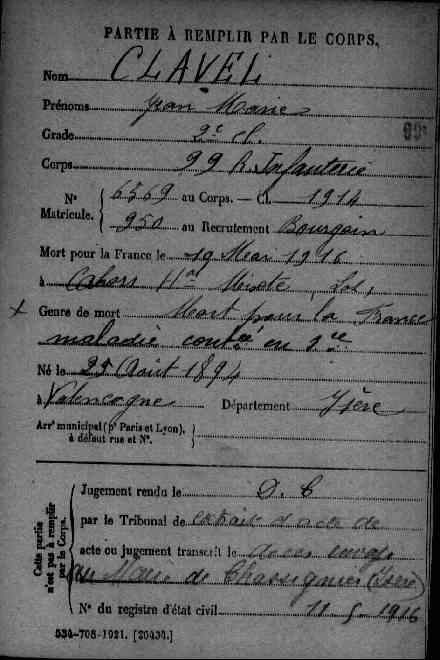 PARTIE À REMPLIR PAR LE CORPS.
Nom CLAVEL
Prénoms Jean Marie
Grade 2e cl.
Corps 99 R. Infanterie
N° Matricule. { 6569 au Corps. — Cl. 1914
950 au Recrutement Bourgoin
Mort pour la France le 19 Mai 1916
à Cahors Hal Mixte, Lot,
Genre de mort Mort pour la France
maladie contée en sce
Né le 25 Août 1894
à Valencogne Département Isère
Arrt municipal (pr Paris et Lyon), à défaut rue et N°. }
Cette partie n'est pas à remplir par le Corps. {
Jugement rendu le D. C
par le Tribunal de extrait d'acte de
acte ou jugement transcrit le décès envoyé
au Maire de Chassignieu (Isère)
N° du registre d'état civil 11 5 1916
534-708-1921. [20434.]